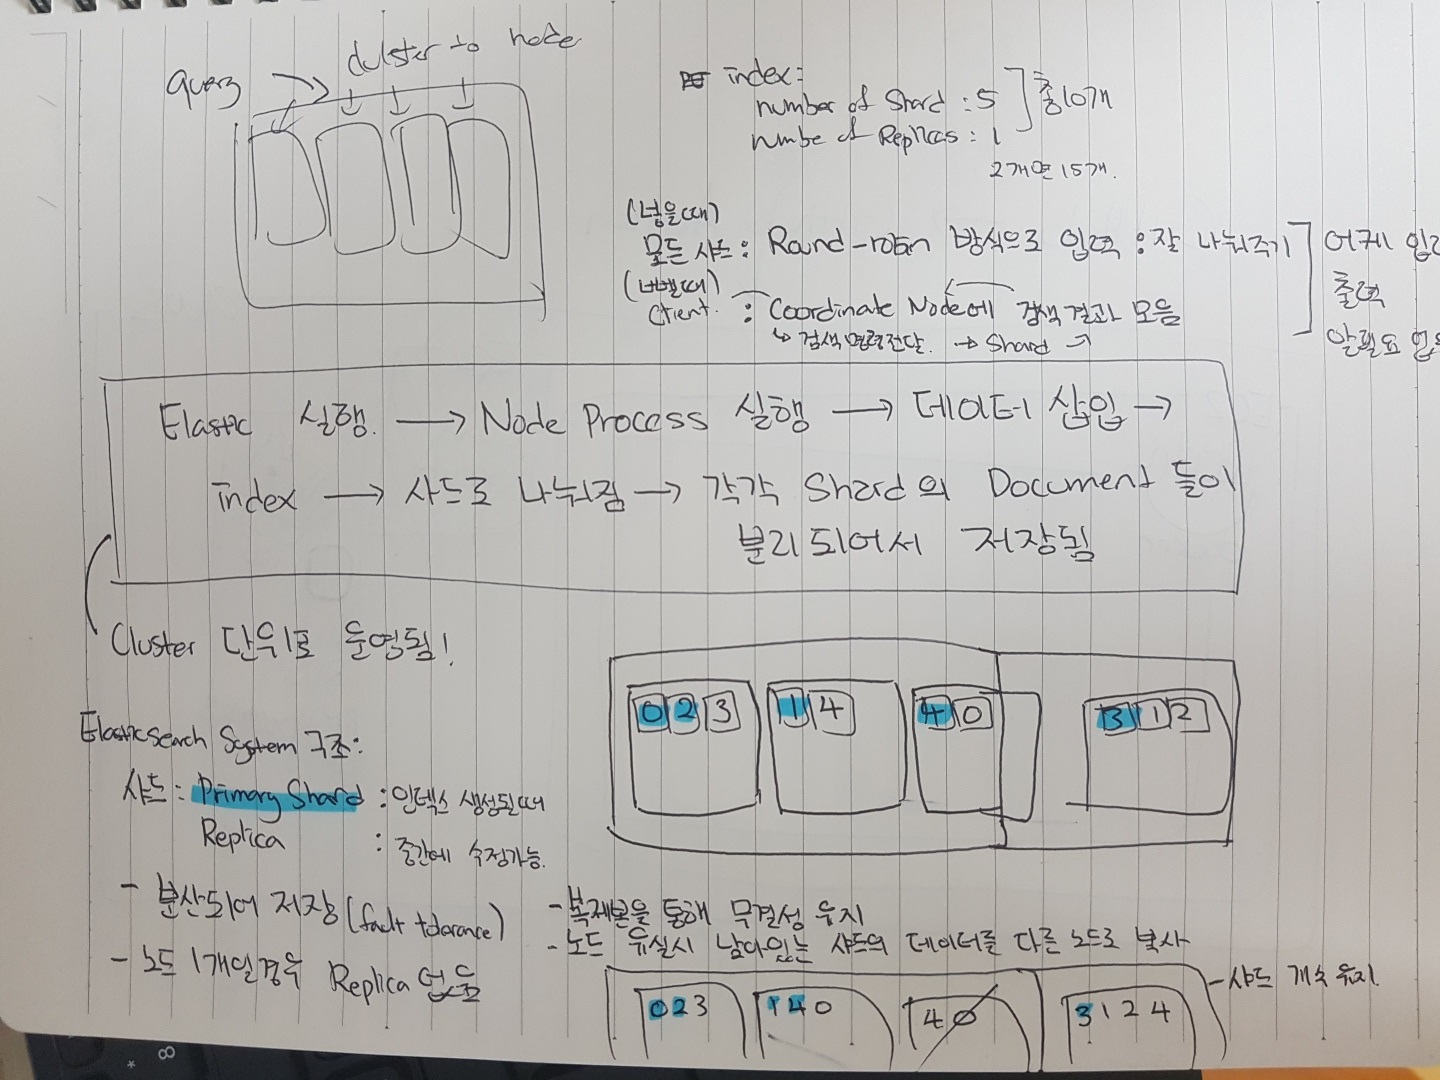 cluster to node
query
index:
number of Shard : 5
numbe of Replicas : 1
총 10개
2개면 15개.
(넣을때)
모든 샤드 : Round-robin 방식으로 입력 : 잘 나눠주기
(뺄때)
Client. : Coordinate Node에 검색결과 모음
↳ 검색명령전달. → Shard ↗
어케 입
출력
알필요 없
Elastic 실행. → Node Process 실행 → 데이터 삽입 →
index → 샤드로 나눠짐 → 각각 Shard의 Document 들이
분리되어서 저장됨
Cluster 단위로 운영됨!
0 2 3 1 4 4 0 3 1 2
Elasticsearch System 구조:
샤드 : Primary Shard : 인덱스 생성될때
Replica : 중간에 수정가능.
- 분산되어 저장 (fault tolerance)
- 노드 1개일경우 Replica 없음
- 복제본을 통해 무결성 유지
- 노드 유실시 남아있는 샤드의 데이터를 다른 노드로 복사
- 샤드 개수 유지
0 2 3 1 4 0 4 0 3 1 2 4
* 8